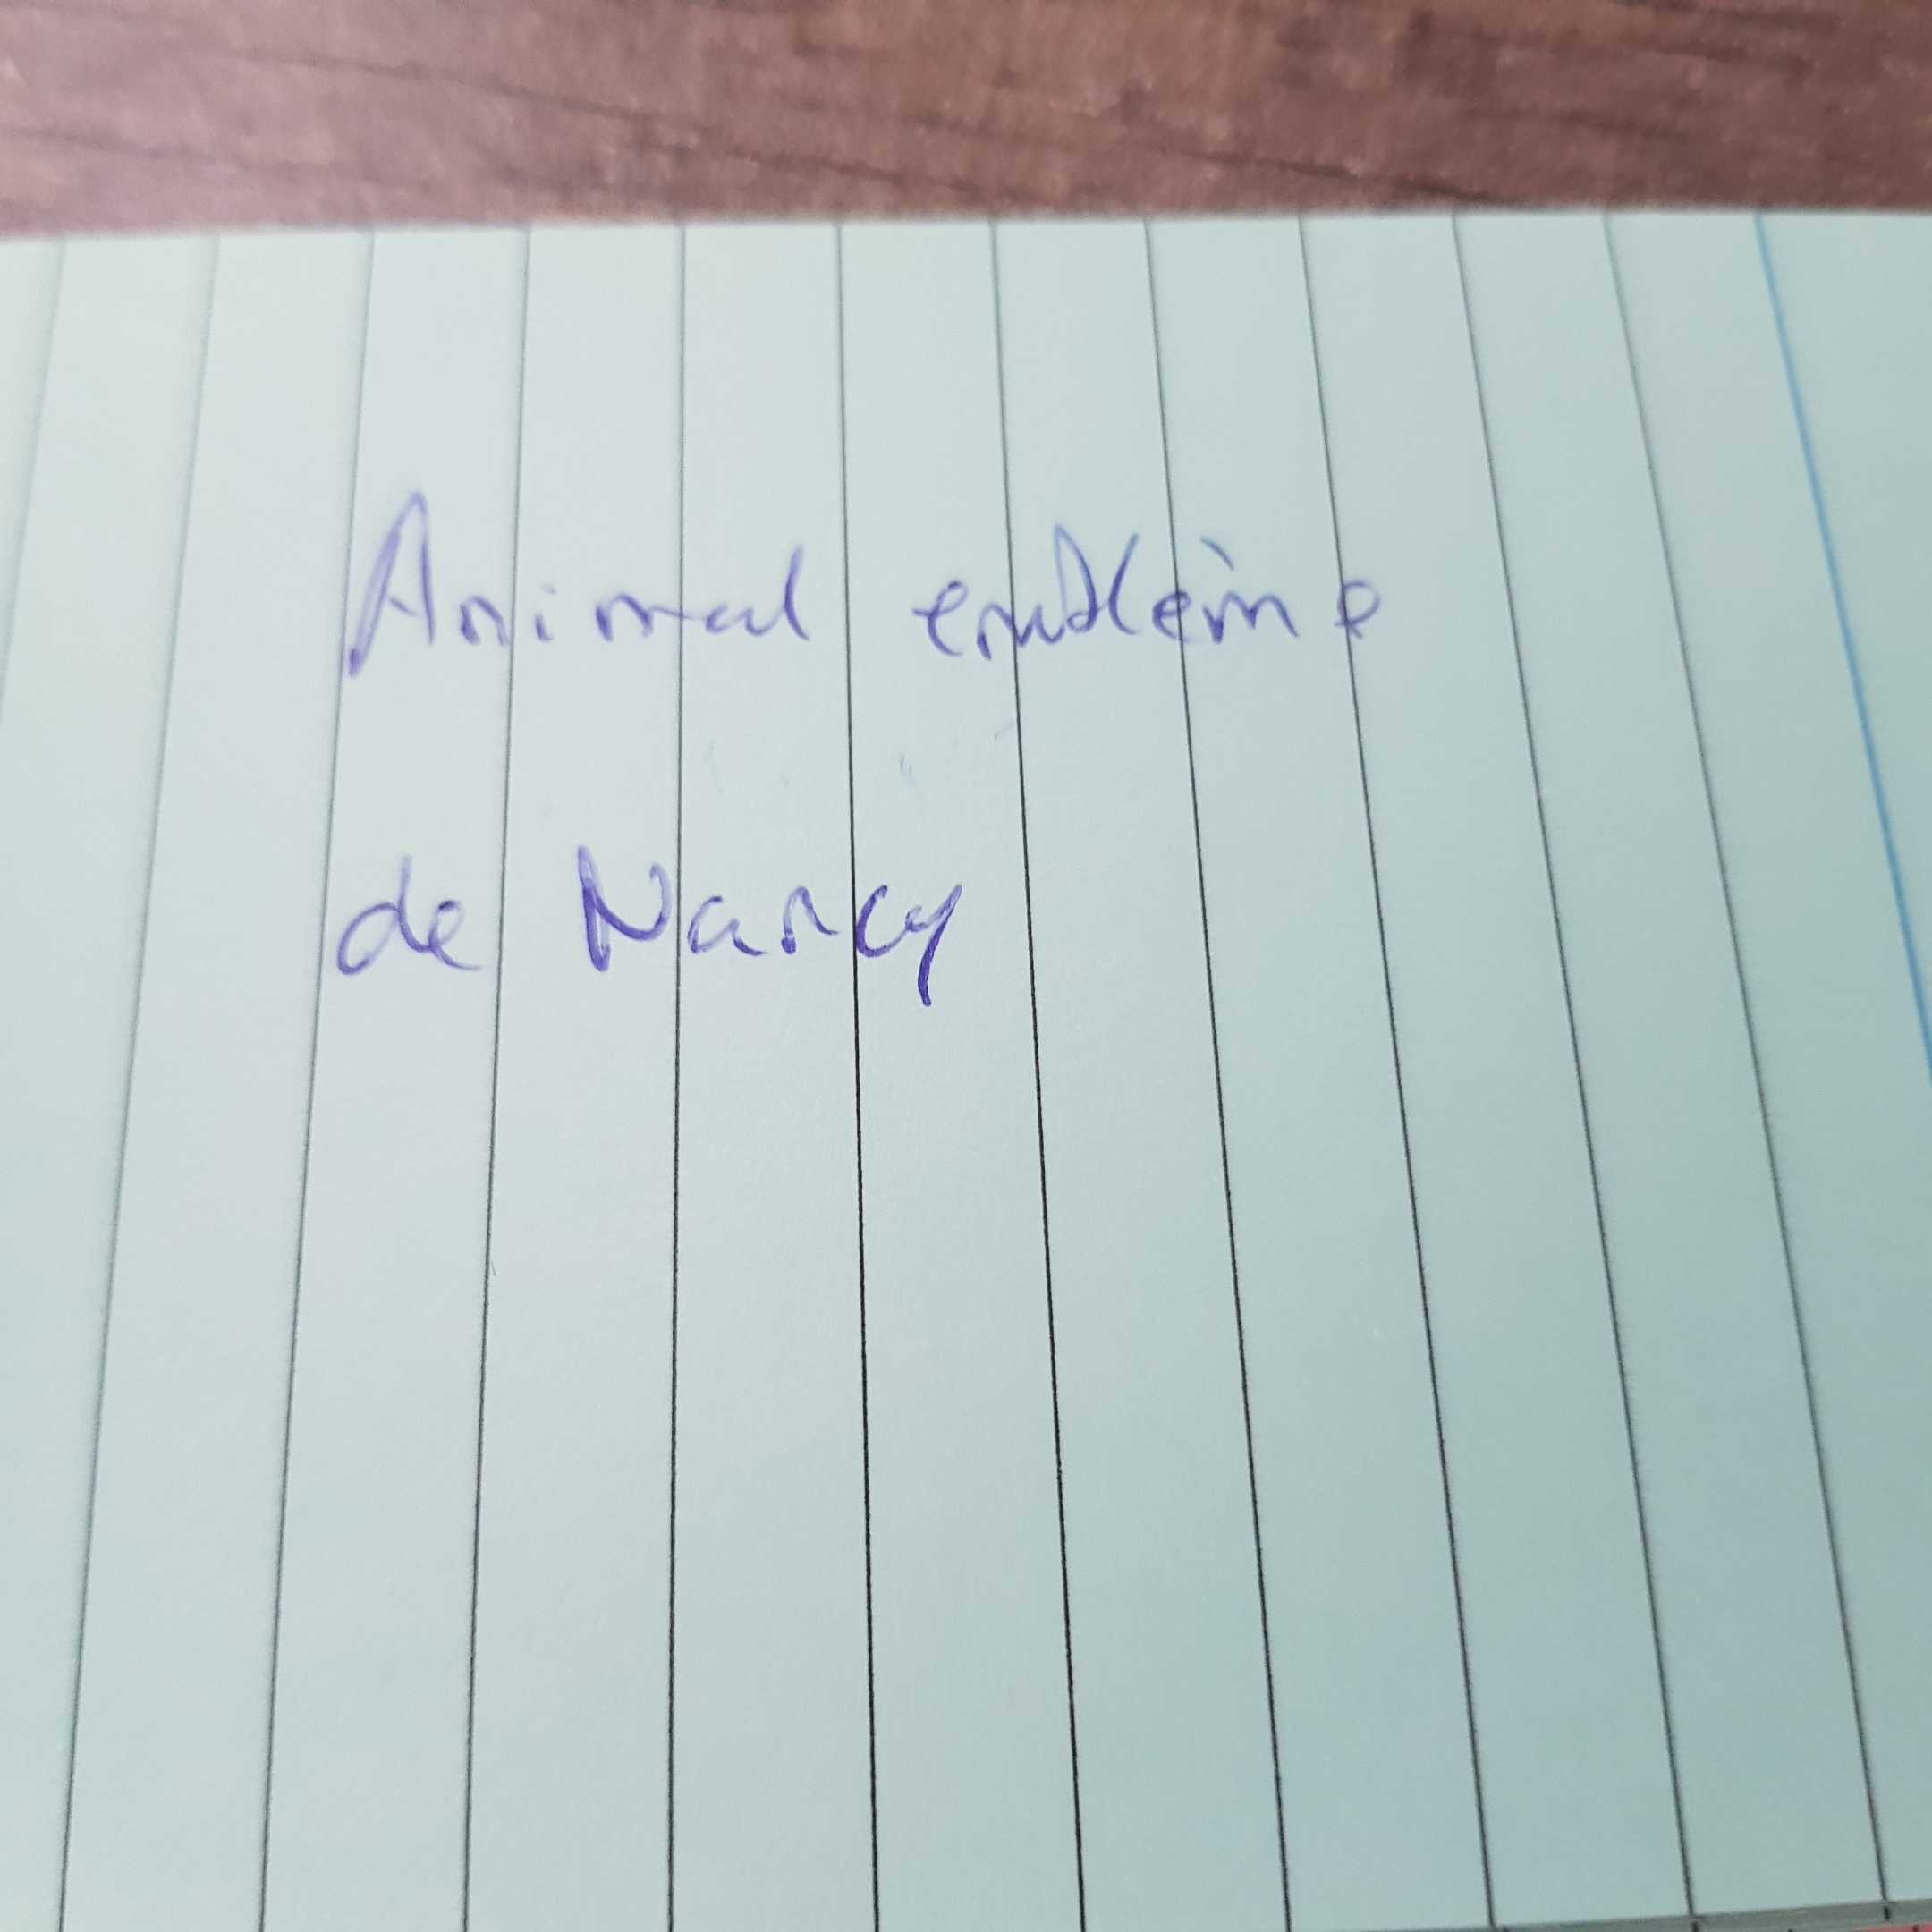 Animal emblème
de Nancy